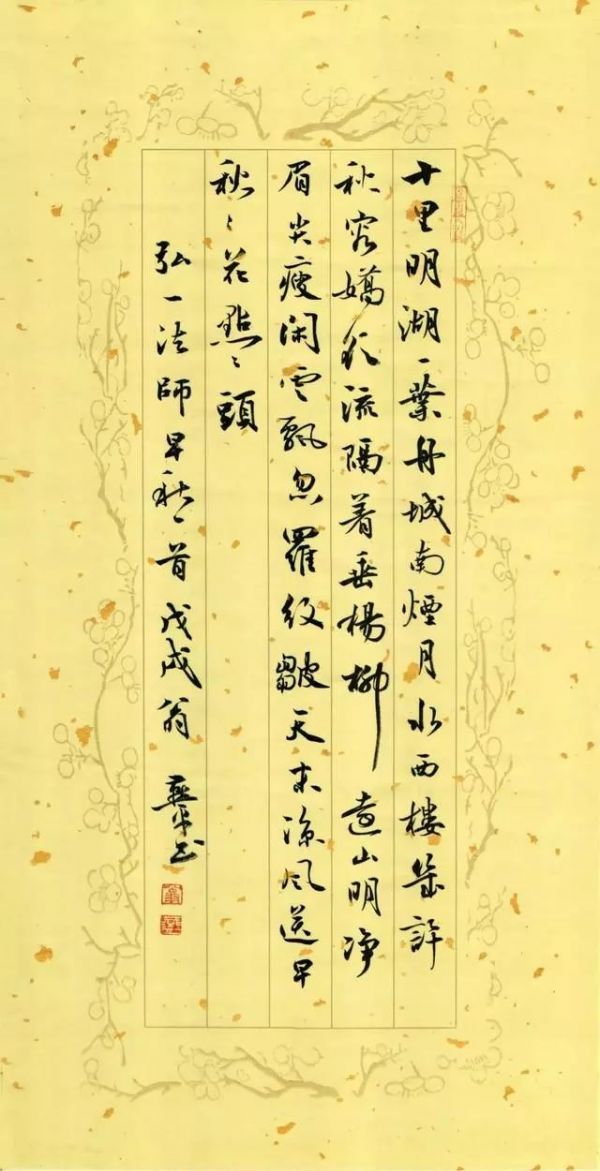 十里明湖一葉舟城南煙月水西樓幾許
秋容嬌欲流隔着垂楊柳遠山明净
眉尖瘦闲雲飄忽羅紋皺天末涼风送早
秋〻花點〻頭
弘一法師早秋一首戊戌翁